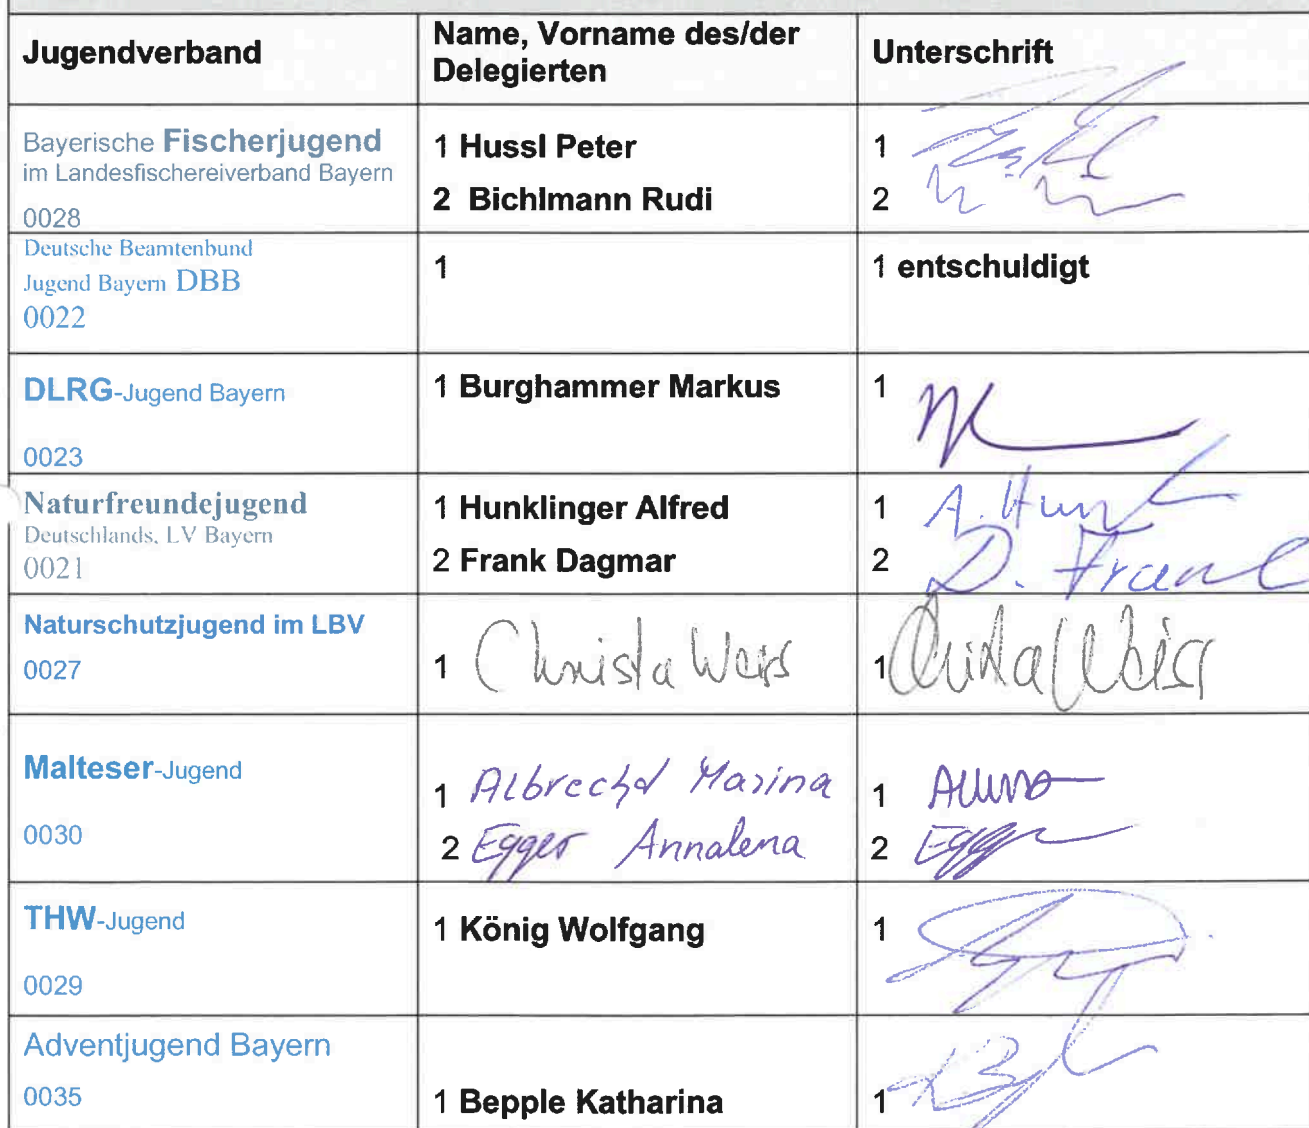 Jugendverband
Name, Vorname des/der
Delegierten
Unterschrift
Bayerische Fischerjugend
im Landesfischereiverband Bayern
0028
1 Hussl Peter
2 Bichlmann Rudi
1
2
Deutsche Beamtenbund
Jugend Bayern DBB
0022
1
1 entschuldigt
DLRG-Jugend Bayern
0023
1 Burghammer Markus
1
Naturfreundejugend
Deutschlands, LV Bayern
0021
1 Hunklinger Alfred
2 Frank Dagmar
1 A. Hunk
2 D. Frank
Naturschutzjugend im LBV
0027
1 Christa Weiss
1 Christa Weiss
Malteser-Jugend
0030
1 Albrecht Marina
2 Egger Annalena
1
2 Egger
THW-Jugend
0029
1 König Wolfgang
1
Adventjugend Bayern
0035
1 Bepple Katharina
1